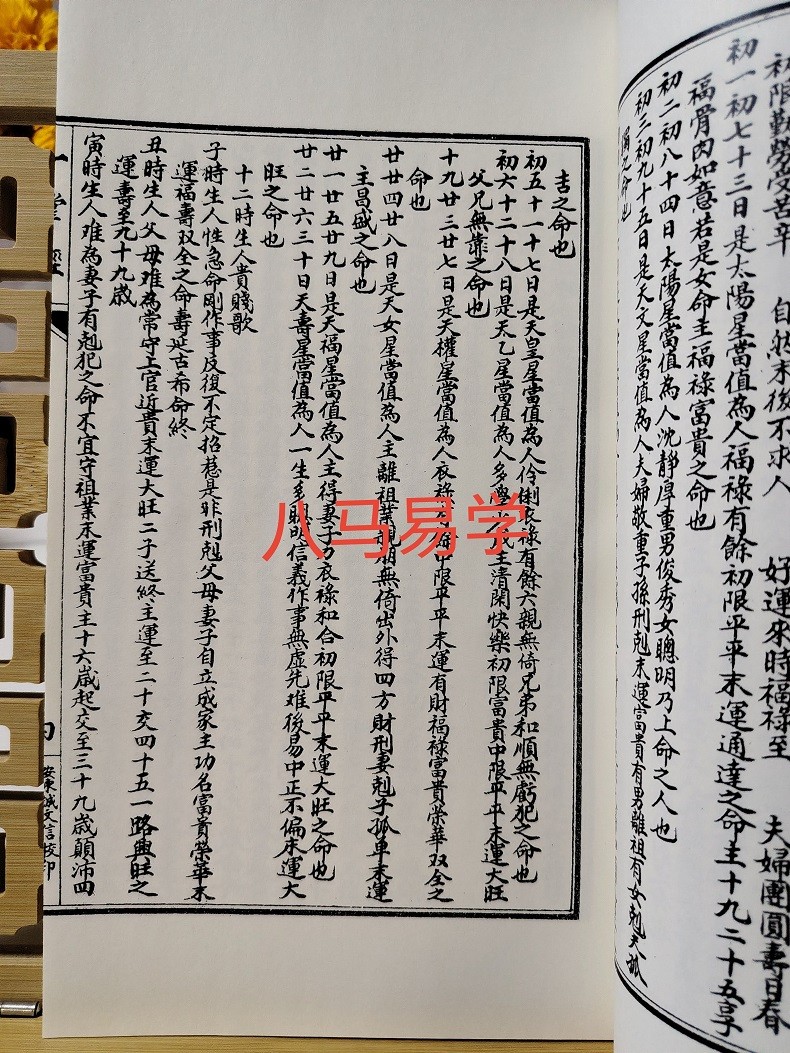 初限勤勞受苦辛　自然末後不求人　好運來時福祿至　夫婦團圓壽百春
初一初七十三日是太陽星當值為人福祿有餘初限平平末運通達之命主十九二十五享
福骨肉如意若是女命主福祿富貴之命也
初二初八十四日太陽星當值為人沈靜厚重男俊秀女聰明乃上命之人也
初三初九十五日是天文星當值為人夫婦敬重子孫刑剋末運富貴有男離祖有女剋夫孤
之命也
吉之命也
初五十一十七日是天皇星當值為人伶俐衣祿有餘六親無倚兄弟和順無虧犯之命也
初六十二十八日是天乙星當值為人多學少成主清閑快樂初限富貴中限平平末運大旺
父兄無靠之命也
十九廿三廿七日是天權星當值為人衣祿有中限平平末運有財福祿富貴榮華双全之
命也
廿廿四廿八日是天女星當值為人主離祖業親朋無倚出外得四方財刑妻剋子孤单末運
主昌盛之命也
廿一廿五廿九日是天福星當值為人主得妻子力衣祿和合初限平平末運大旺之命也
廿二廿六三十日天壽星當值為人一生多聰明信義作事無虛先难後易中正不偏末運大
旺之命也
十二時生人貴賤歌
子時生人性急命剛作事反復不定招惹是非刑剋父母妻子自立成家主功名富貴榮華末
運福壽双全之命壽延古希命終
丑時生人父母难為常守上官近貴末運大旺二子送終主運至二十交四十五一路興旺之
運壽至九十九歲
寅時生人难為妻子有剋犯之命不宜守祖業末運富貴主十六歲起交至三十九歲顛沛四
安東誠文信校印
八马易学